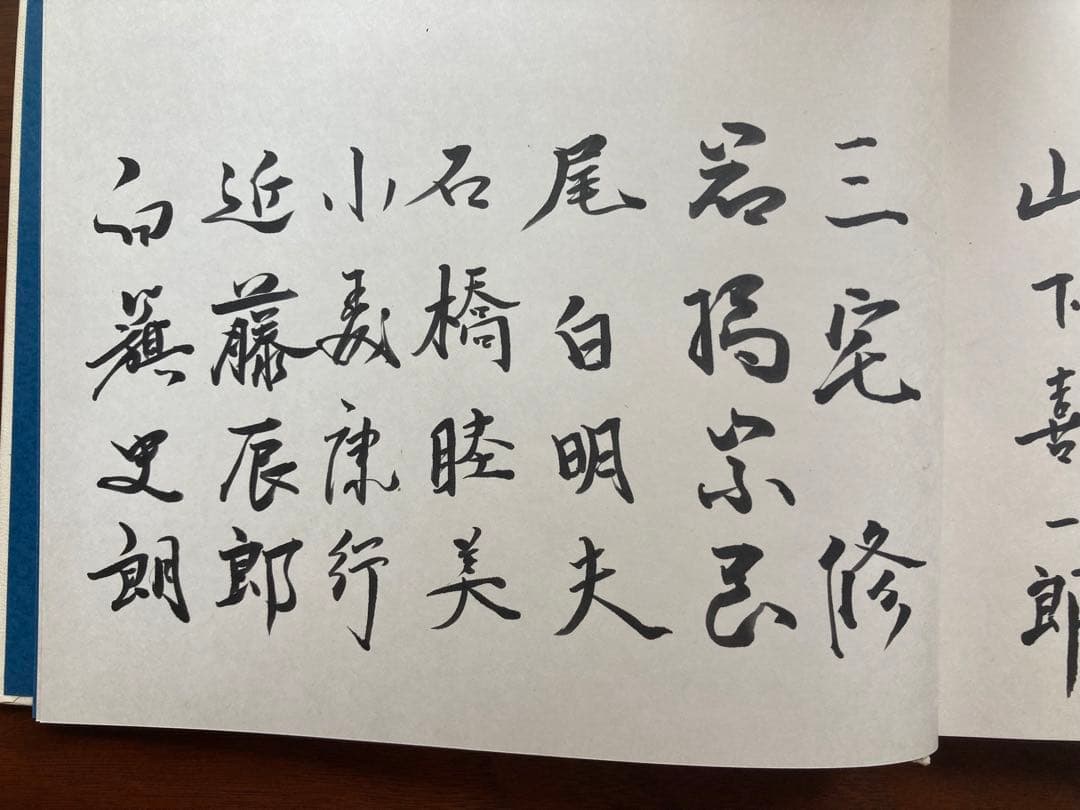 山下喜一郎
三宅 修
岩橋崇至
尾白明夫
石橋睦美
小 康行
近藤辰郎
白籏史朗